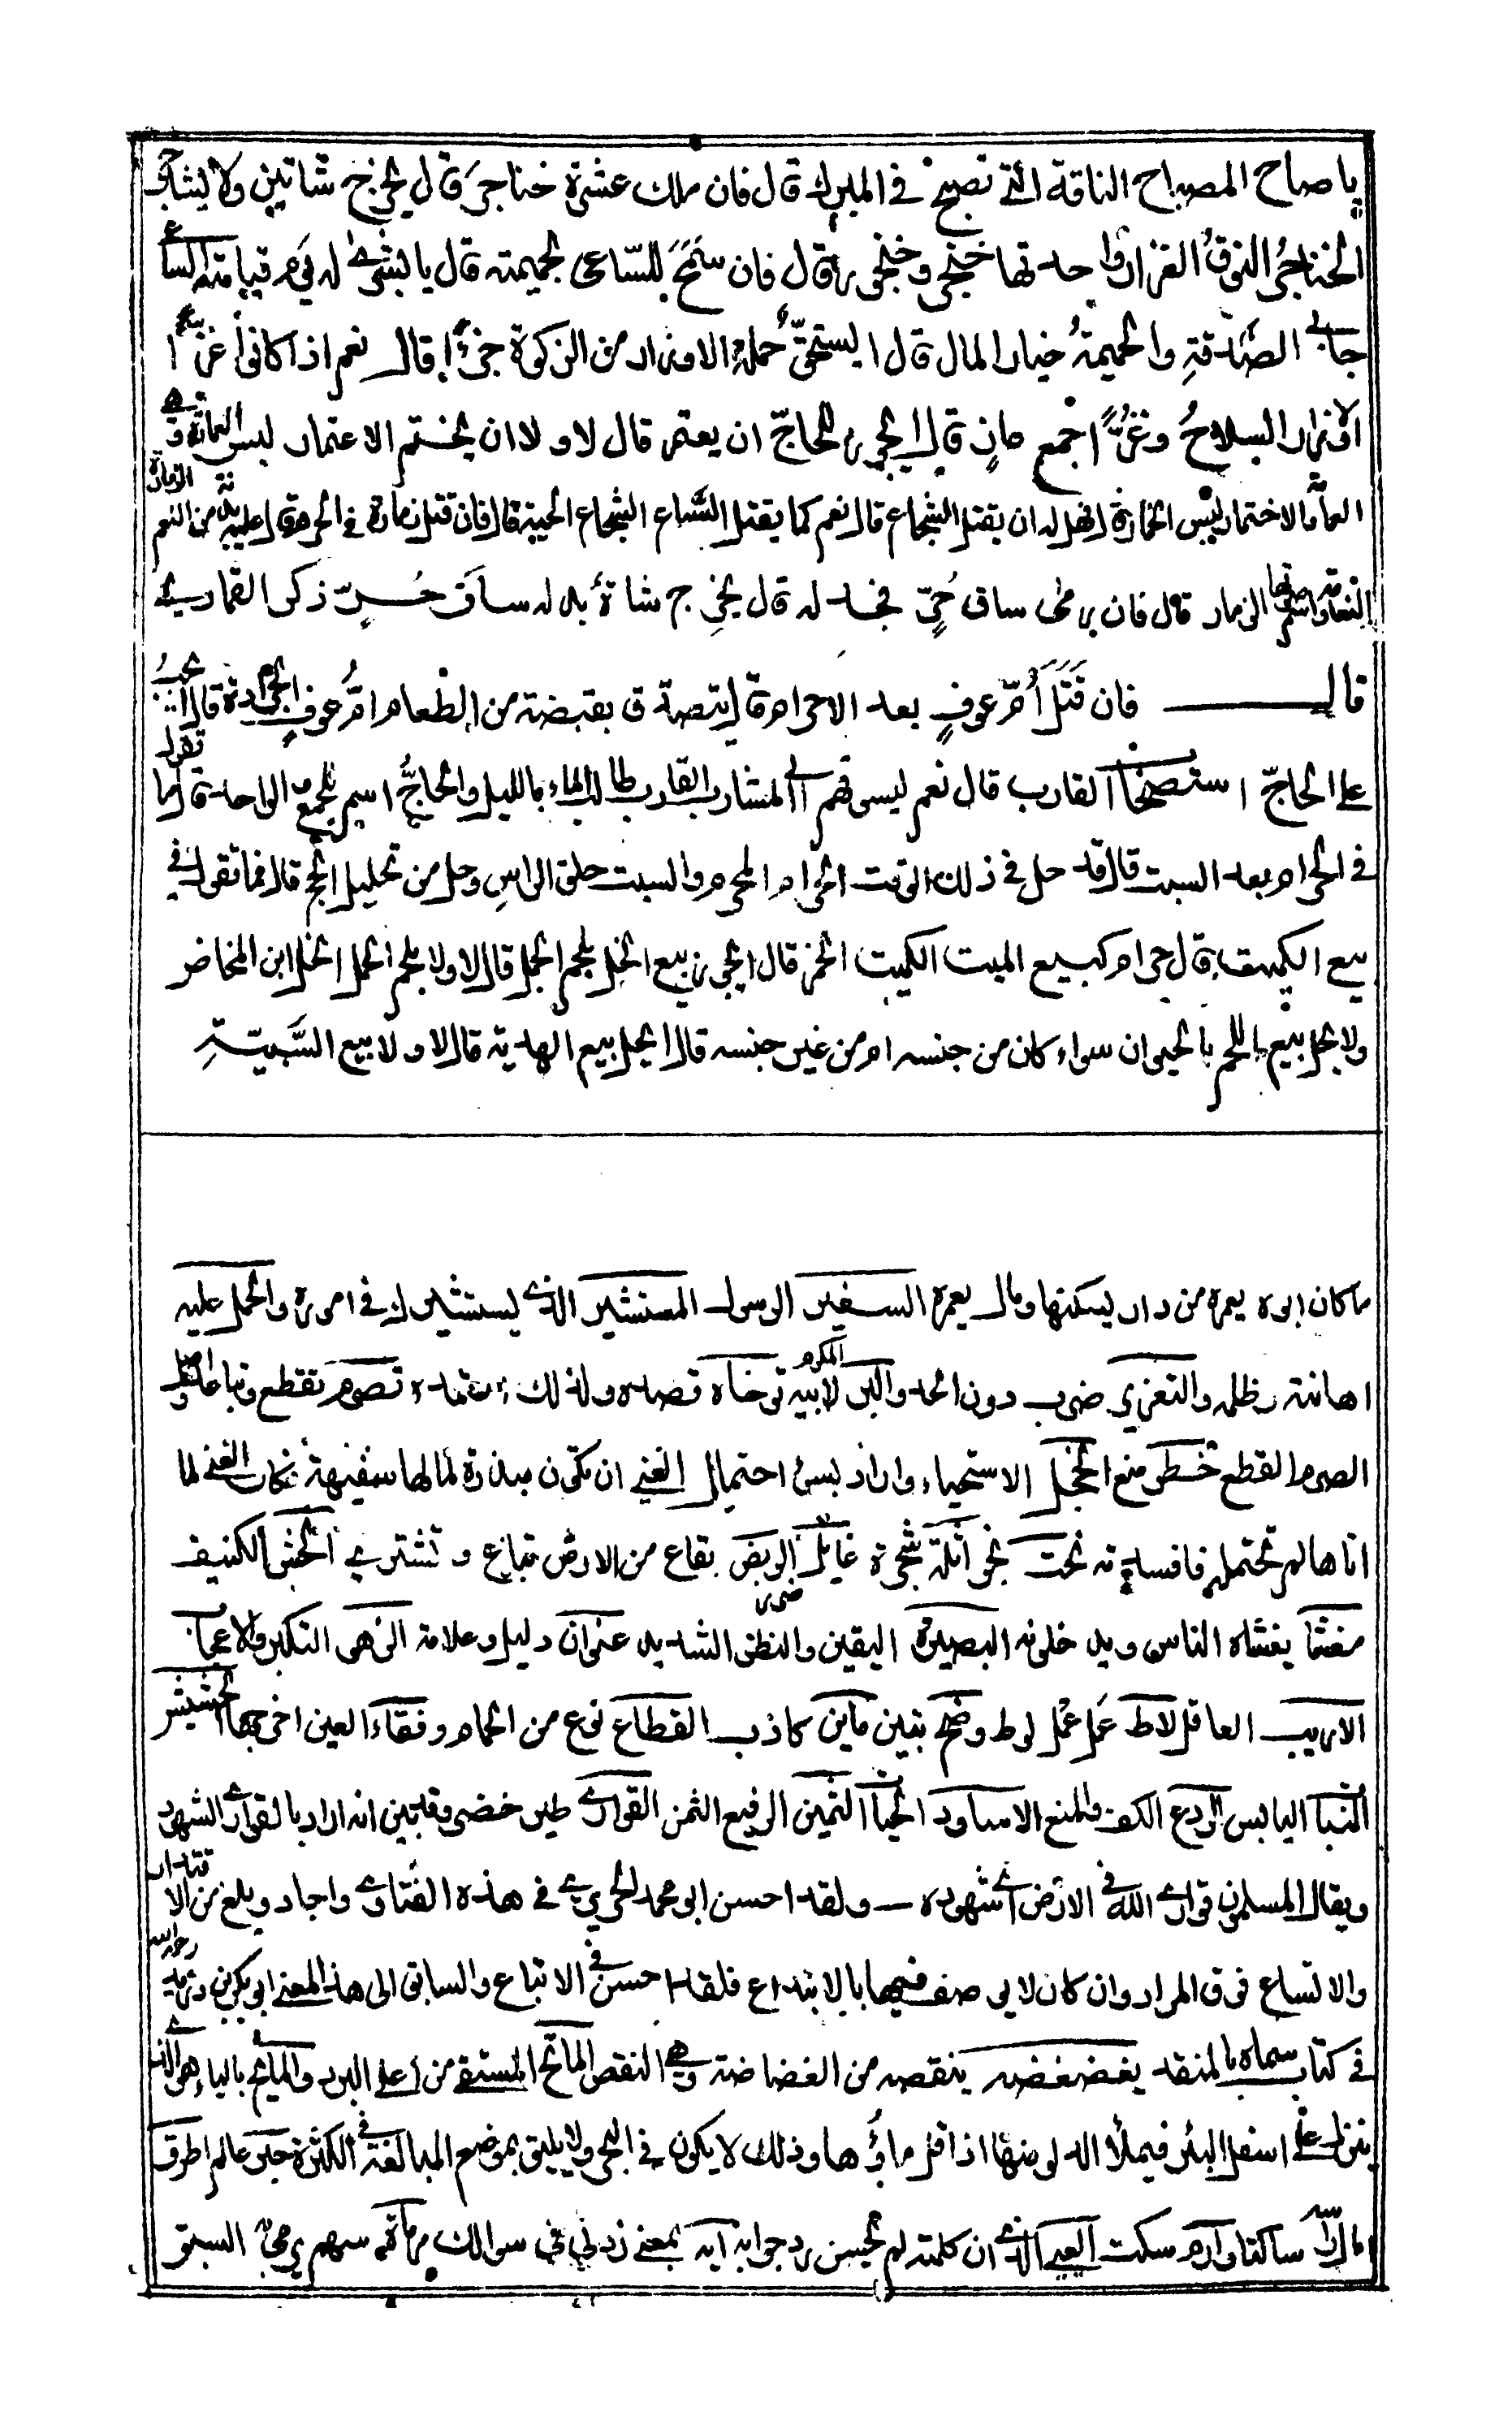 يا صاح المصباح الناقة التي تصبح في المبرك قال فان ملك عشرة خناجر قال يخرج شاتين ولا يشاجر
الخناجر النوق الغزار واحدتها خنجر وخنجور قال فان سمح للساعي بحميمته قال يا بشرى له يوم قيامته الساعي
جابي الصدقة والحميمة خيار المال قال ايستحق حملة الاوزار من الزكوة جزءا قال نعم اذا كانوا غزى
الاوزار السلاح وغزى جمع غاز قال ايجوز للحاج ان يعتمر قال لا ولا ان يختمر الاعتمار لبس العمارة وهي
العمامة والاختمار لبس الخمار قال فهل له ان يقتل الشجاع قال نعم كما يقتل السباع الشجاع الحية قال فان قتل زمارة في الحرم قال عليه بدنة من النعم الزمارة
النعامة واسم صوتها الزمار قال فان رمى ساق حر فجدله قال يخرج شاة بدله ساق حر ذكر القماري
قال فان قتل ام عوف بعد الاحرام قال يتصدق بقبضة من الطعام ام عوف الجرادة قال ايجب
على الحاج استصحاب القارب قال نعم ليسوقهم الى المشارب القارب طالب الماء بالليل والحاج اسم للجمع والواحد قال ما تقول
في الحرام بعد السبت قال قد حل في ذلك الوقت الحرام المحرم والسبت حلق الراس وحل من تحليل الحج قال فما تقول في
بيع الكميت قال حرام كبيع الميت الكميت الخمر قال ايجوز بيع الخل بلحم الجمل قال لا ولا بلحم الحمل الخل ابن المخاض
ولا يحل بيع اللحم بالحيوان سواء كان من جنسه ام من غير جنسه قال ايحل بيع الهدية قال لا ولا بيع السبية
ما كان ابوه يعمره من دار يسكنها ومال يعمره السفير الرسول المستشير الذي يستشيرك في اموره والحمل عليه
اهانته وظلمه والتعزير ضرب دون الحد والبر لابيه المكرم توخاه قصده ولذلك اعتمده تصوم تقطع وتباعد واصل
الصوم القطع خطر منع الخجل الاستحياء واراد بسوء احتمال الغنى ان تكون مبذرة لمالها سفيهة فكان الغنى لما
اتاها لم تحتمله فافسدته نحت نجر اثلة شجرة غايل الربض بقاع من الارض تباع وتشترى الحش الكنيف
مغشا يغشاه الناس ويدخلونه البصيرة اليقين والنظر الشديد عنوان دليل وعلامة الزهو التكبر والاعجاب
الاريب العاقل لاط عمل عمل لوط وضح بتين ماين كاذب القطاع نوع من الحمام وفقاء العين اخرجها الحشيش
النبات اليابس الردع الكف والمنع الاساود الحيات الثمين الرفيع الثمن القواري طير خضر وقد بين انه اراد بالقواري الشهود
ويقال المسلمون قواري الله في الارض اي شهوده ولقد احسن ابو محمد الحريري في هذه الفتاوي واجاد وبلغ من الاقتدار
والاتساع فوق المراد وان كان لا يوصف فيها بالابتداع فلقد احسن في الاتباع والسابق الى هذا المعنى ابو بكر بن دريد رحمه الله
في كتاب سماه بالمنقد يغض غضه ينقصه من الغضاضة وهي النقص الماتح المستقي من اعلى البير والمايح بالياء هو الذي
ينزل على اسفل البئر فيملأ الدلو منها اذا قل ماؤها وذلك لا يكون في البحر ولا يليق بموضع المبالغة في الكثرة حبر عالم اطرق
امال راسه ساكتا وارم سكت العيي الذي ان كلمته لم يحسن رد جوابه ايه بمعنى زدني في سوالك مرماة سهم يرمى به السبق